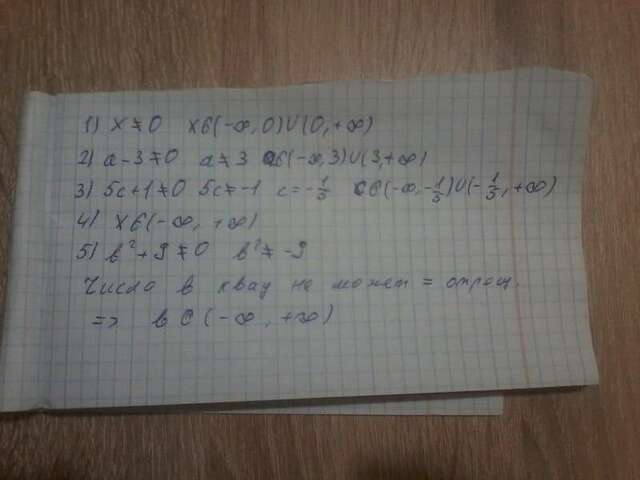 1) x ≠ 0 x ∈ (-∞, 0) ∪ (0, +∞)
2) a - 3 ≠ 0 a ≠ 3 a ∈ (-∞, 3) ∪ (3, +∞)
3) 5c + 1 ≠ 0 5c ≠ -1 c = -1/5 c ∈ (-∞, -1/5) ∪ (-1/5, +∞)
4) x ∈ (-∞, +∞)
5) b² + 9 ≠ 0 b² ≠ -9
Число в квад не может = отриц.
=> b ∈ (-∞, +∞)